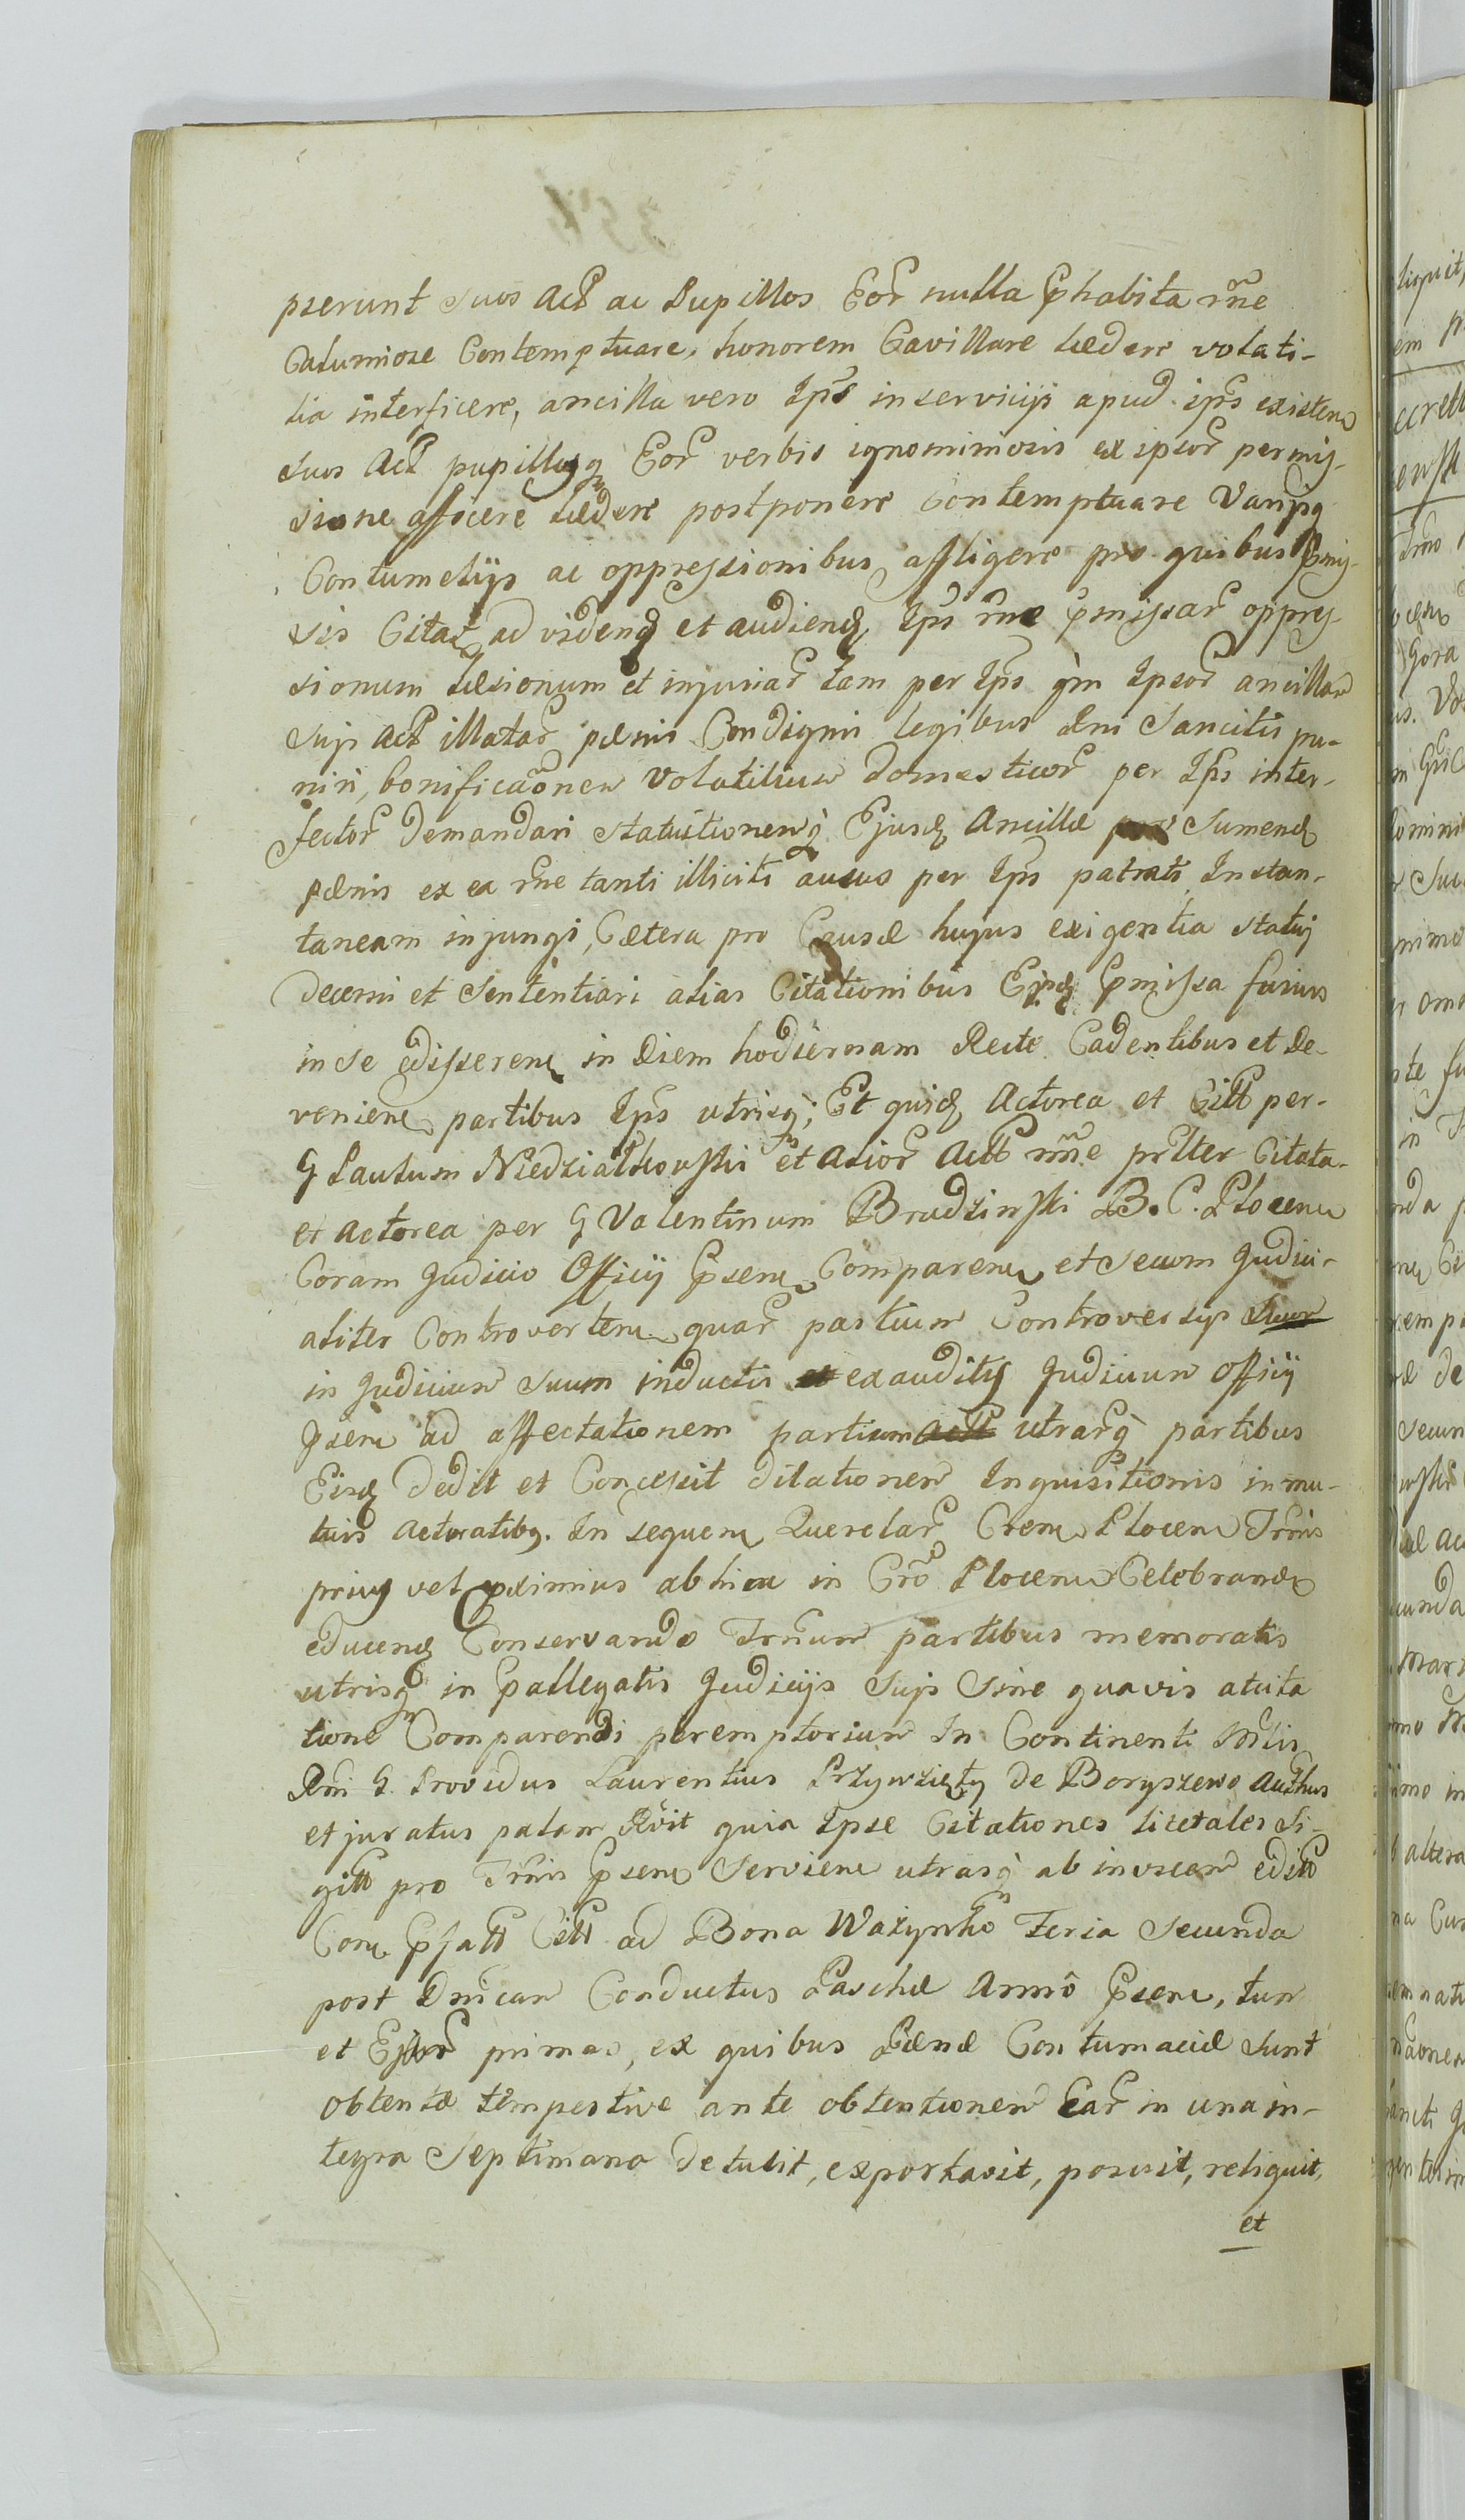 pserunt suos Actt ac Pupillos Eor nulla p̃habita rñe
Calumiose Contemptuare, honorem Cavillare lædere volati-
lia interficere, ancilla vero Ips in servicijs apud ips existen
suos Act pupillosq Eor verbis ignominiosis ex ipsor permis-
sione afficere lædere postponere Contemptuare Varijsq
Contumelijs ac oppressionibus affligere pro quibus p̃mis-
sis Citat ad videnđ et audienđ Ips rñe p̃missar oppres-
sionum læsionum et injuriar tam per Ips qm Ipsor ancillam
sujs Act illatar pænis Condignis legibus Rni Sancitis pu-
niri, bonificaõnem Volatilium domesticor per Ips inter-
fector demandari statuitionemq Ejusđ Ancillæ Sumenđ
pænis ex ea rñe tanti illiciti ausus per Ips patrati Instan-
taneam injungi, Cætera pro Causæ hujus exigentia statuj
decerni et Sententiari alias Citationibus Ejsđ p̃missa fusius
in se edisseren in Diem hodiernam Recte Cadentibus et De-
venien partibus Ips utrisq; Et quidđ Actorea et Citt per
G Paulum Niedziałkowski et Alior Actt rñe pr̃lter Citata
et Actorea per G Valentinum Brudzinski B. C. Plocen
Coram Judicio Officij p̃sen Comparen et Secum Judici-
aliter Controverten quar partium Controversijs suor
in Judicium Suum inductis et exauditis Judicium Officij
p̃sen ad affectationem partium Actt utrarq partibus
Eisđ dedit et Concessit dilationem Inquisitionis in mu-
tuis Actoratibq. In sequen Querelar Cren Plocen Trmis
prius vel proximius abhinc in Cro Plocen Celebranđ
educenđ Conservando Trnum partibus memoratis
utrisq in p̃allegatis Judicijs Sujs Sine quavis atuita
tione Comparendi peremptorium In Continenti Mstis
Rni G. Providus Laurentius Przywzięty de Boryszewo Authus
et juratus palam Rõit quia Ipse Citationes licetales Si-
gitt pro Trmis p̃sen Servien utrasq ab invicem editt
Con p̃fatt Citt ad Bona Ważynko Feria Secunda
post Dnicam Conductus Paschæ Anno p̃sen, tum
et Ejsdr primas, ex quibus Pænæ Contumaciæ sunt
obtentæ tempestive ante obtentionem Ear in una in-
tegra Septimana detulit, exportavit, posuit, reliquit,
et